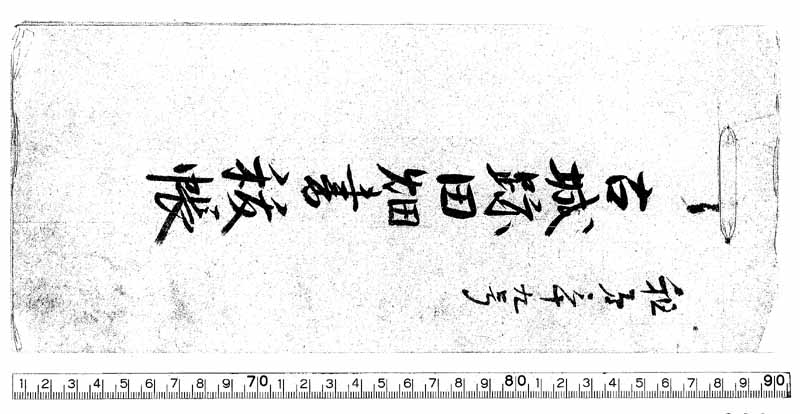 一 古城跡田畑書抜帳
第三十九号
1 2 3 4 5 6 7 8 9 70 1 2 3 4 5 6 7 8 9 80 1 2 3 4 5 6 7 8 9 90